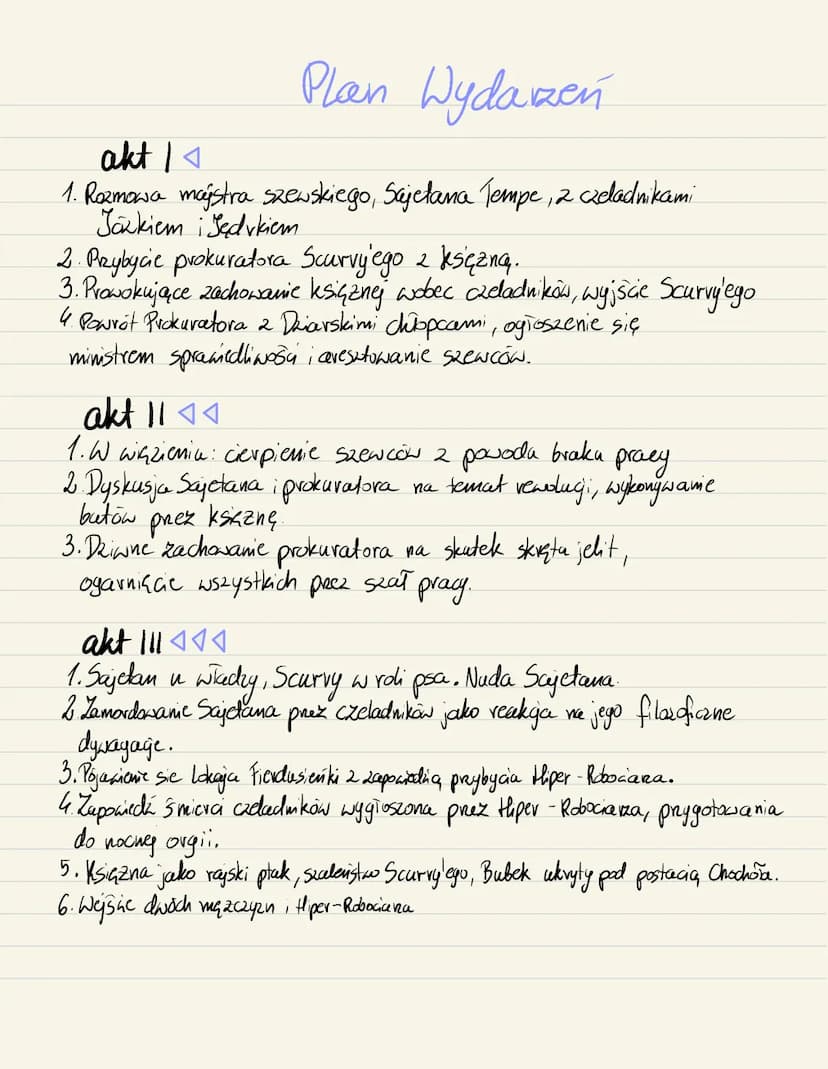 Plan Wydarzeń
akt I ◁
1. Rozmowa majstra szewskiego, Sajetana Tempe, z czeladnikami
Józkiem i Jędrkiem
2. Przybycie prokuratora Scurvy'ego z księżną.
3. Prowokujące zachowanie księżnej wobec czeladników, wyjście Scurvy'ego
4. Powrót Prokuratora z Dziarskimi chłopcami, ogłoszenie się
ministrem sprawiedliwości i aresztowanie szewców.
akt II ◁◁
1. W więzieniu: cierpienie szewców z powodu braku pracy
2. Dyskusja Sajetana i prokuratora na temat rewolucji, wykonywanie
butów przez księżnę.
3. Dziwne zachowanie prokuratora na skutek skrętu jelit,
ogarnięcie wszystkich przez szał pracy.
akt III ◁◁◁
1. Sajetan u władzy, Scurvy w roli psa. Nuda Sajetana.
2. Zamordowanie Sajetana przez czeladników jako reakcja na jego filozoficzne
dywagacje.
3. Pojawienie się lokaja Fierdusieńki z zapowiedzią przybycia Hiper-Robociarza.
4. Zapowiedź śmierci czeladników wygłoszona przez Hiper-Robociarza, przygotowania
do nocnej orgii.
5. Księżna jako rajski ptak, szaleństwo Scurvy'ego, Bubek ukryty pod postacią Chochoła.
6. Wejście dwóch mężczyzn i Hiper-Robociarza